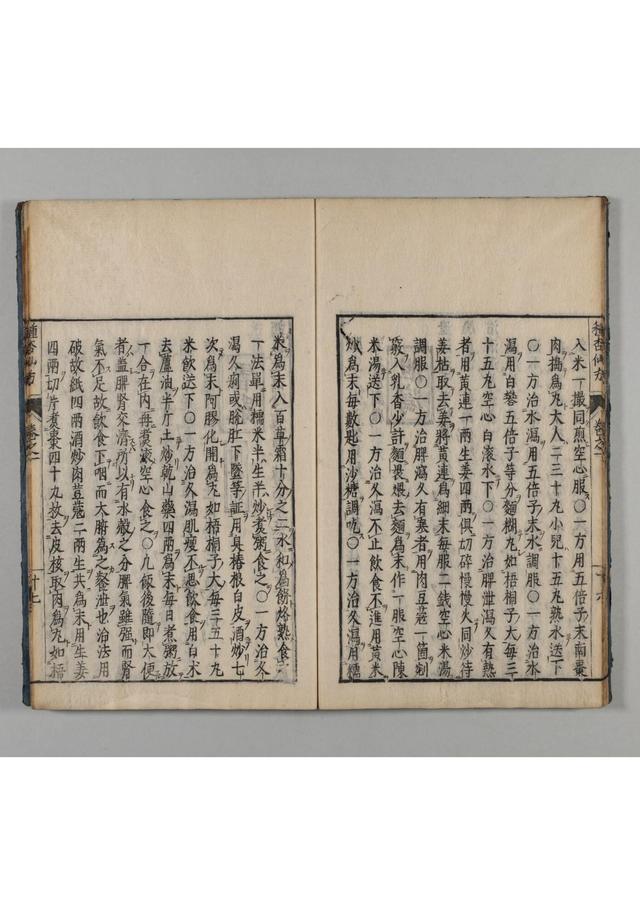 種杏仙方
卷之二
入米一撮同煎空心服○一方用五倍子末南棗
肉搗為丸大人二三十九小兒十五丸熟水送下
○一方治水瀉用五倍子末水調服○一方治水
瀉用白礬五倍子等分麵糊丸如梧桐子大每三
十五丸空心白滾水下○一方治脾泄瀉久有熱
者用黃連一兩生姜四兩俱切碎慢慢火同炒待
姜枯取去姜將黃連為細末每服二錢空心米湯
調服○一方治脾瀉久有寒者用肉豆蔻一箇剜
竅入乳香少許麵裹煨去麵為末作一服空心陳
米湯送下○一方治久瀉不止飲食不進用黃米
炒為末每數匙用沙糖調吃○一方治久瀉用糯
米為末入百草霜十分之二水和為餅烙熟食之
一法單用糯米半生半炒煮粥食之○一方治久
瀉久痢或脫肛下墜等証用臭椿根白皮酒炒七
次為末阿膠化開為丸如梧桐子大每三五十九
米飲送下○一方治久瀉肌瘦不思飲食用白木
去蘆油半斤土炒乾山藥四兩為末每日煮粥放
一合在內再煮滾空心食之○凡飯後隨即大便
者盖脾腎交濟所以有水穀之分脾氣雖强而腎
氣不足故飲食下咽而大腑為之餐泄也治法用
破故紙四兩酒炒肉荳蔻二兩生共為末用生姜
四兩切片煮棗四十九枚去皮核取肉為丸如梧
種杏仙方
卷之二
十七